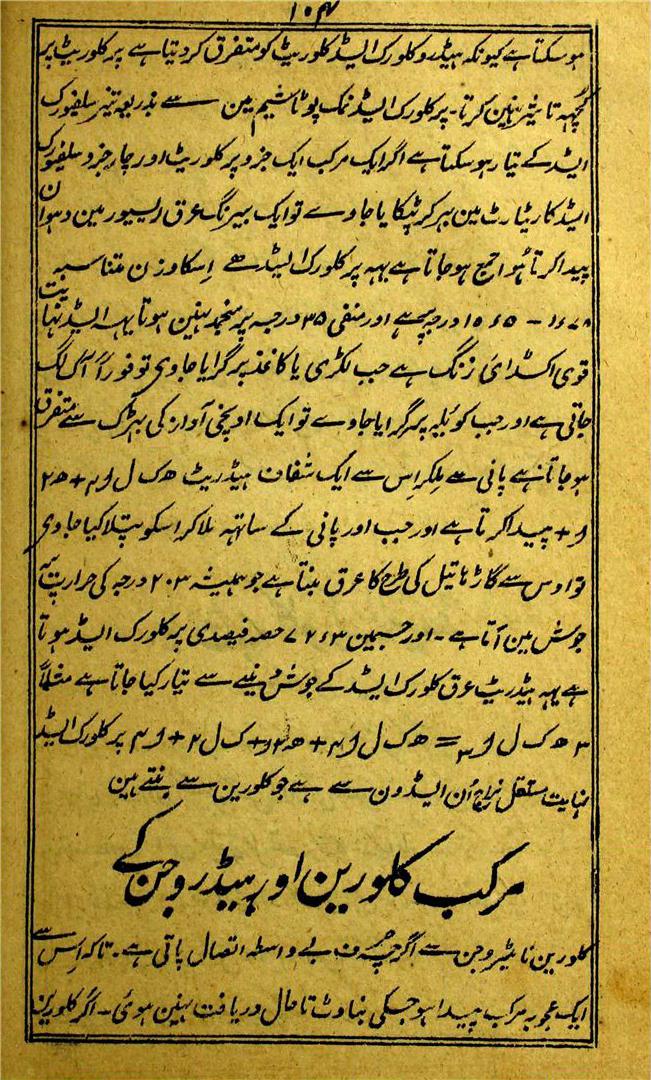 ۱۰۴
ہوسکتا ہے کیونکہ ہیڈروکلورک ایسڈ کلوریٹ کو متفرق کردیتا ہے پر کلوریٹ پر
کچہہ تاثیر نہین کرتا۔ پر کلورک ایسڈ نمک پوٹاشیم مین سے بذریعہ تیز سلفیورک
ایسڈ کے تیار ہوسکتا ہے اگر ایک مرکب ایک جزو پر کلوریٹ اور چار جزو سلفیورک
ایسڈ کا ریٹارٹ مین بہر کر ٹپکایا جاوے تو ایک بیرنگ عرق ریسیور مین دہوان
پیدا کرتا ہُوا جمع ہوجاتا ہے یہہ پر کلورک ایسڈ ہے اِسکا وزن متناسبہ
۱۶۷۸ - ۱۵۶۵ درجہ پر ہے اور منفی ۳۵ درجہ پر منجمد نہین ہوتا یہہ ایسڈ نہایت
قوی اکسڈائی زنگ ہے جب لکڑی یا کاغذ پر گرایا جاوی تو فوراً آگ لگ
جاتی ہے اور جب کوئیلہ پر گرایا جاوے تو ایک اونچی آواز کی بہڑک سے متفرق
ہوجاتا ہے پانی سے ملکر اِس سے ایک شفاف ہیڈریٹ ھ ک ل او ۴ + ھ ۲
او + پیدا کرتا ہے اور جب اور پانی کے ساتہہ ملا کر اسکو پتلا کیا جاوی
تو اوس سے گاڑہا تیل کی طرح کا عرق بنتا ہے جو ہمیشہ ۲۰۳ درجہ کی حرارت پر
جوش مین آتا ہے۔ اور جسمین ۷۲۶۳ حصہ فیصدی پر کلورک ایسڈ ہوتا
ہے یہہ ہیڈریٹ عرق کلورک ایسڈ کے جوش دینے سے تیار کیا جاتا ہے مثلاً
۳ ھ ک ل او ۳ = ھ ک ل او ۴ + ھ ۲ او + ک ل ۲ + او ۴ پر کلورک ایسڈ
نہایت مستقل مزاج اُن ایسڈون سے ہے جو کلورین سے بنتے ہین
مرکب کلورین اور ہیڈروجن کے
کلورین نائیٹروجن سے اگرچہ صرف بے واسطہ اتصال پاتی ہے۔ تاکہ اِس سے
ایک عجوبہ مرکب پیدا ہو جسکی بناوٹ تا حال دریافت نہین ہوئی۔ اگر کلورین